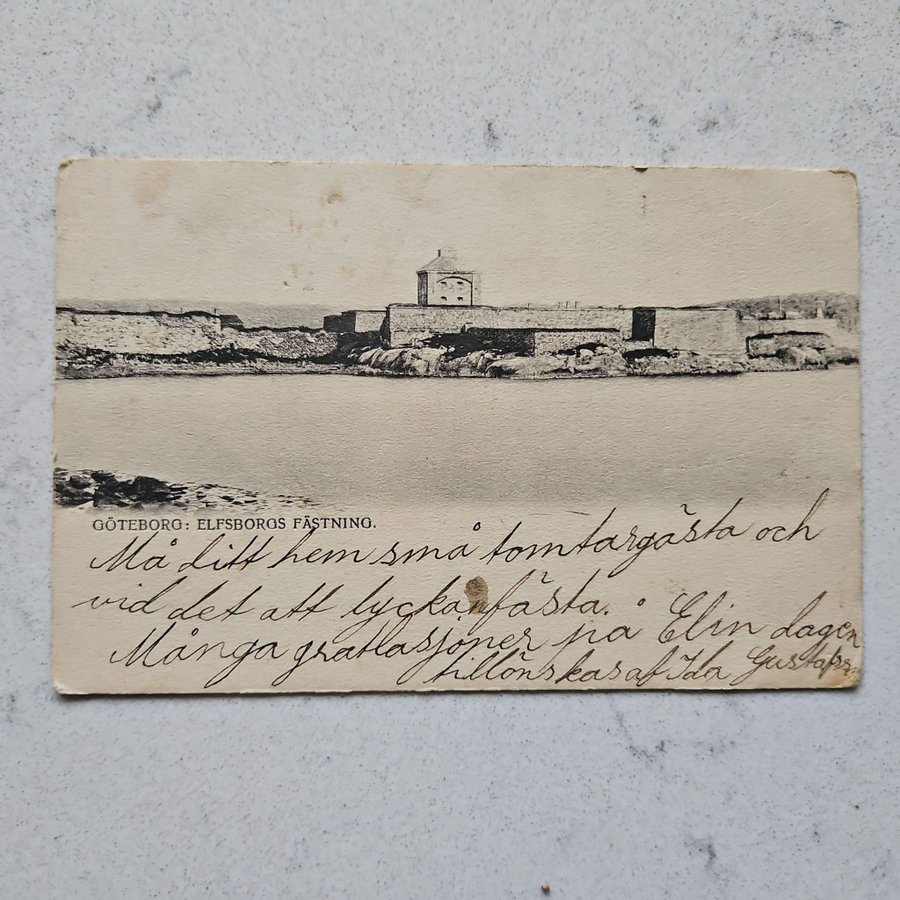 GÖTEBORG: ELFSBORGS FÄSTNING.
Må ditt hem små tomtar gästa och
vid det att lyckan fästa.
Många gratlasjoner på Elin dagen
tillönskas af Ida Gustafs